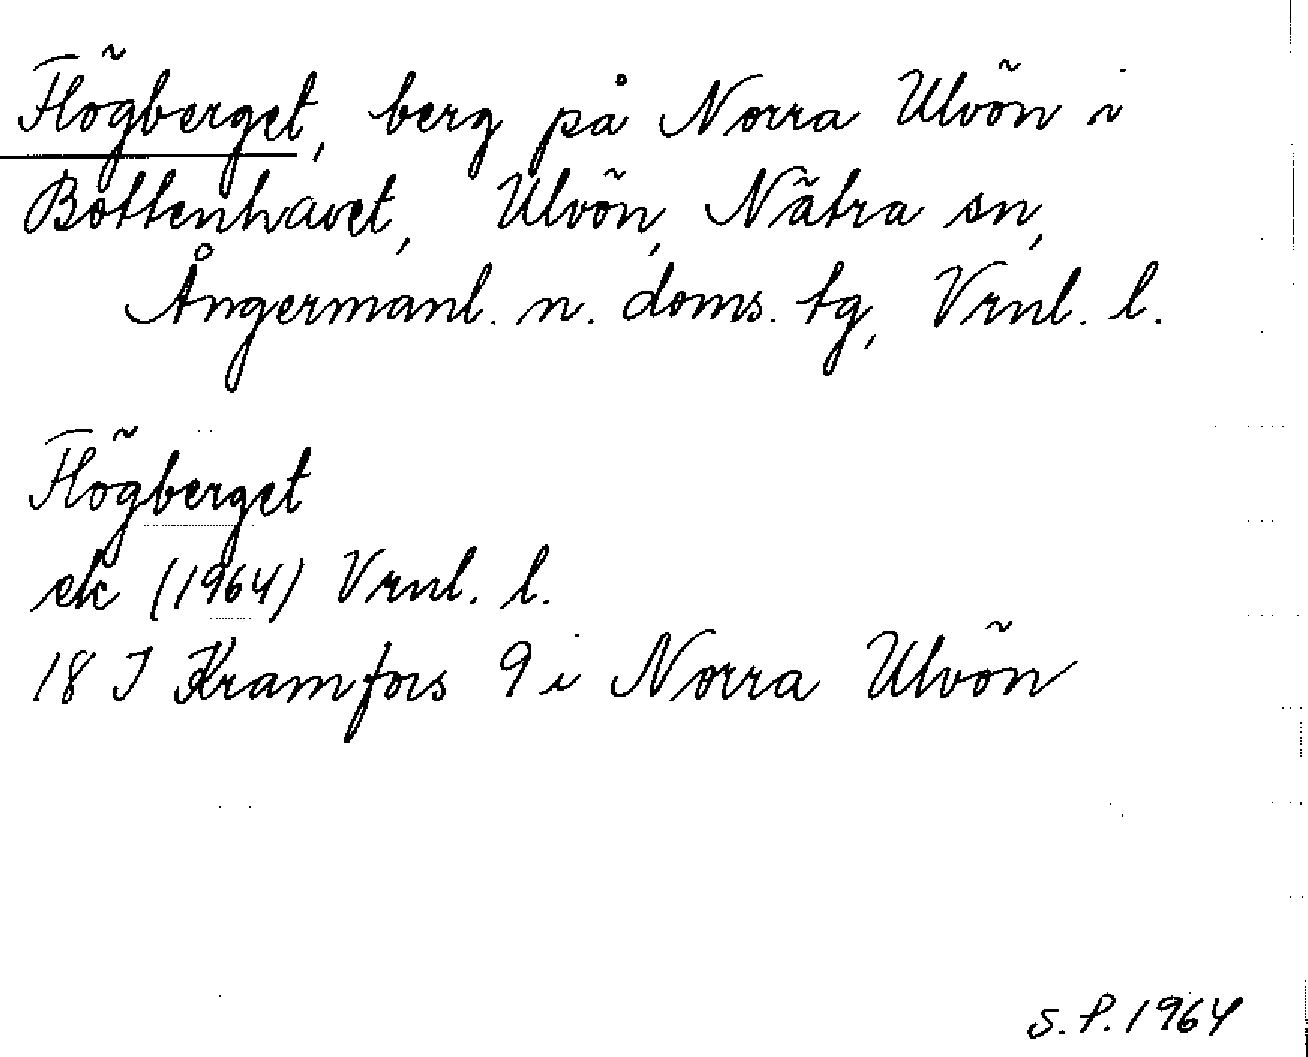 Flögberget, berg på Norra Ulvön i
Bottenhavet, Ulvön, Nätra sn,
Ångermanl. n. doms. tg, Vrnl. l.
Flögberget
ek (1964) Vrnl. l.
18 I Kramfors 9 i Norra Ulvön
S. P. 1964